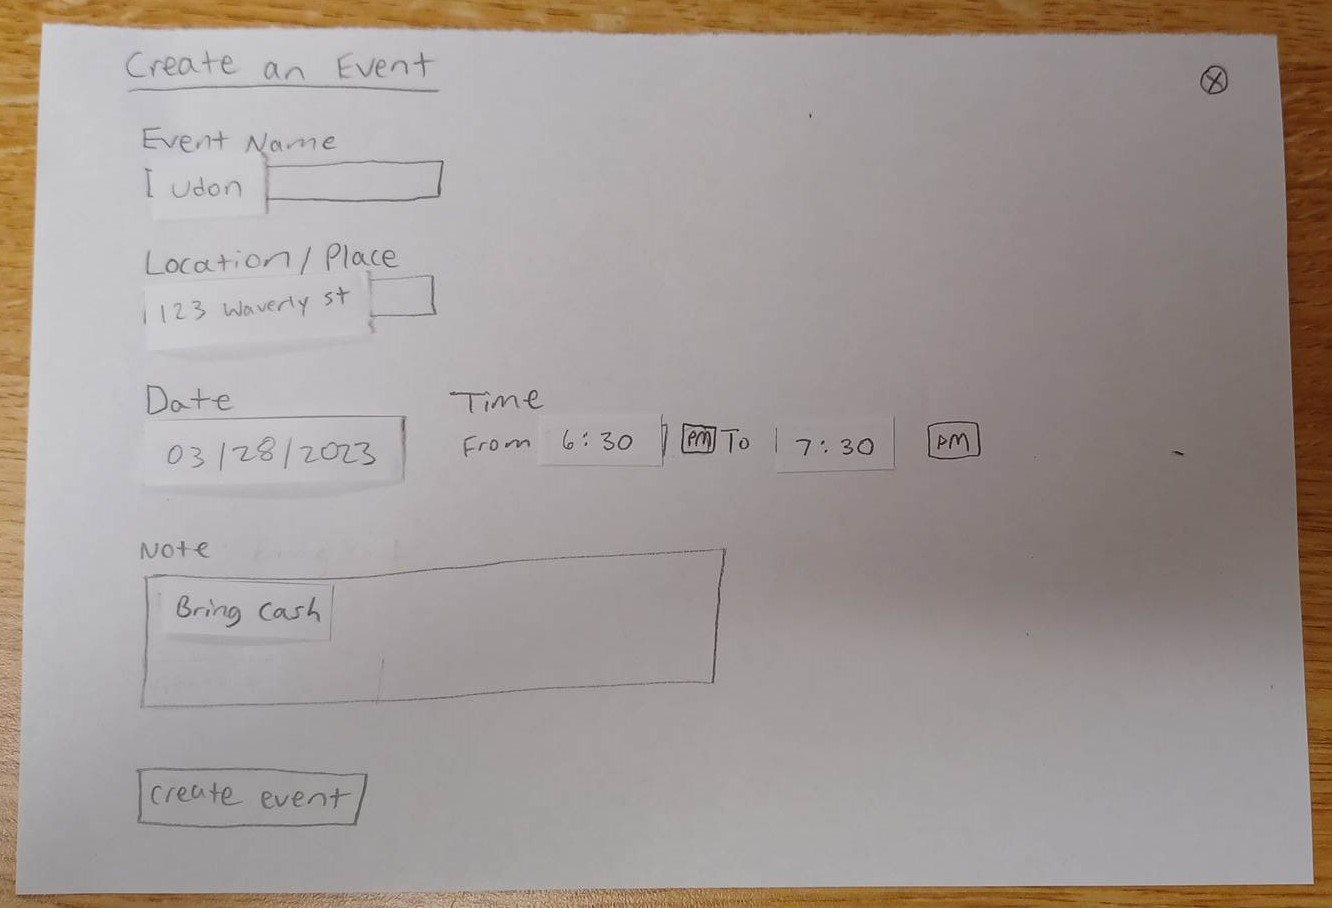 Create an Event
Event Name
udon
Location / Place
123 Waverly st
Date
Time
03/28/2023
From 6:30 PM To 7:30 PM
Note
Bring cash
create event